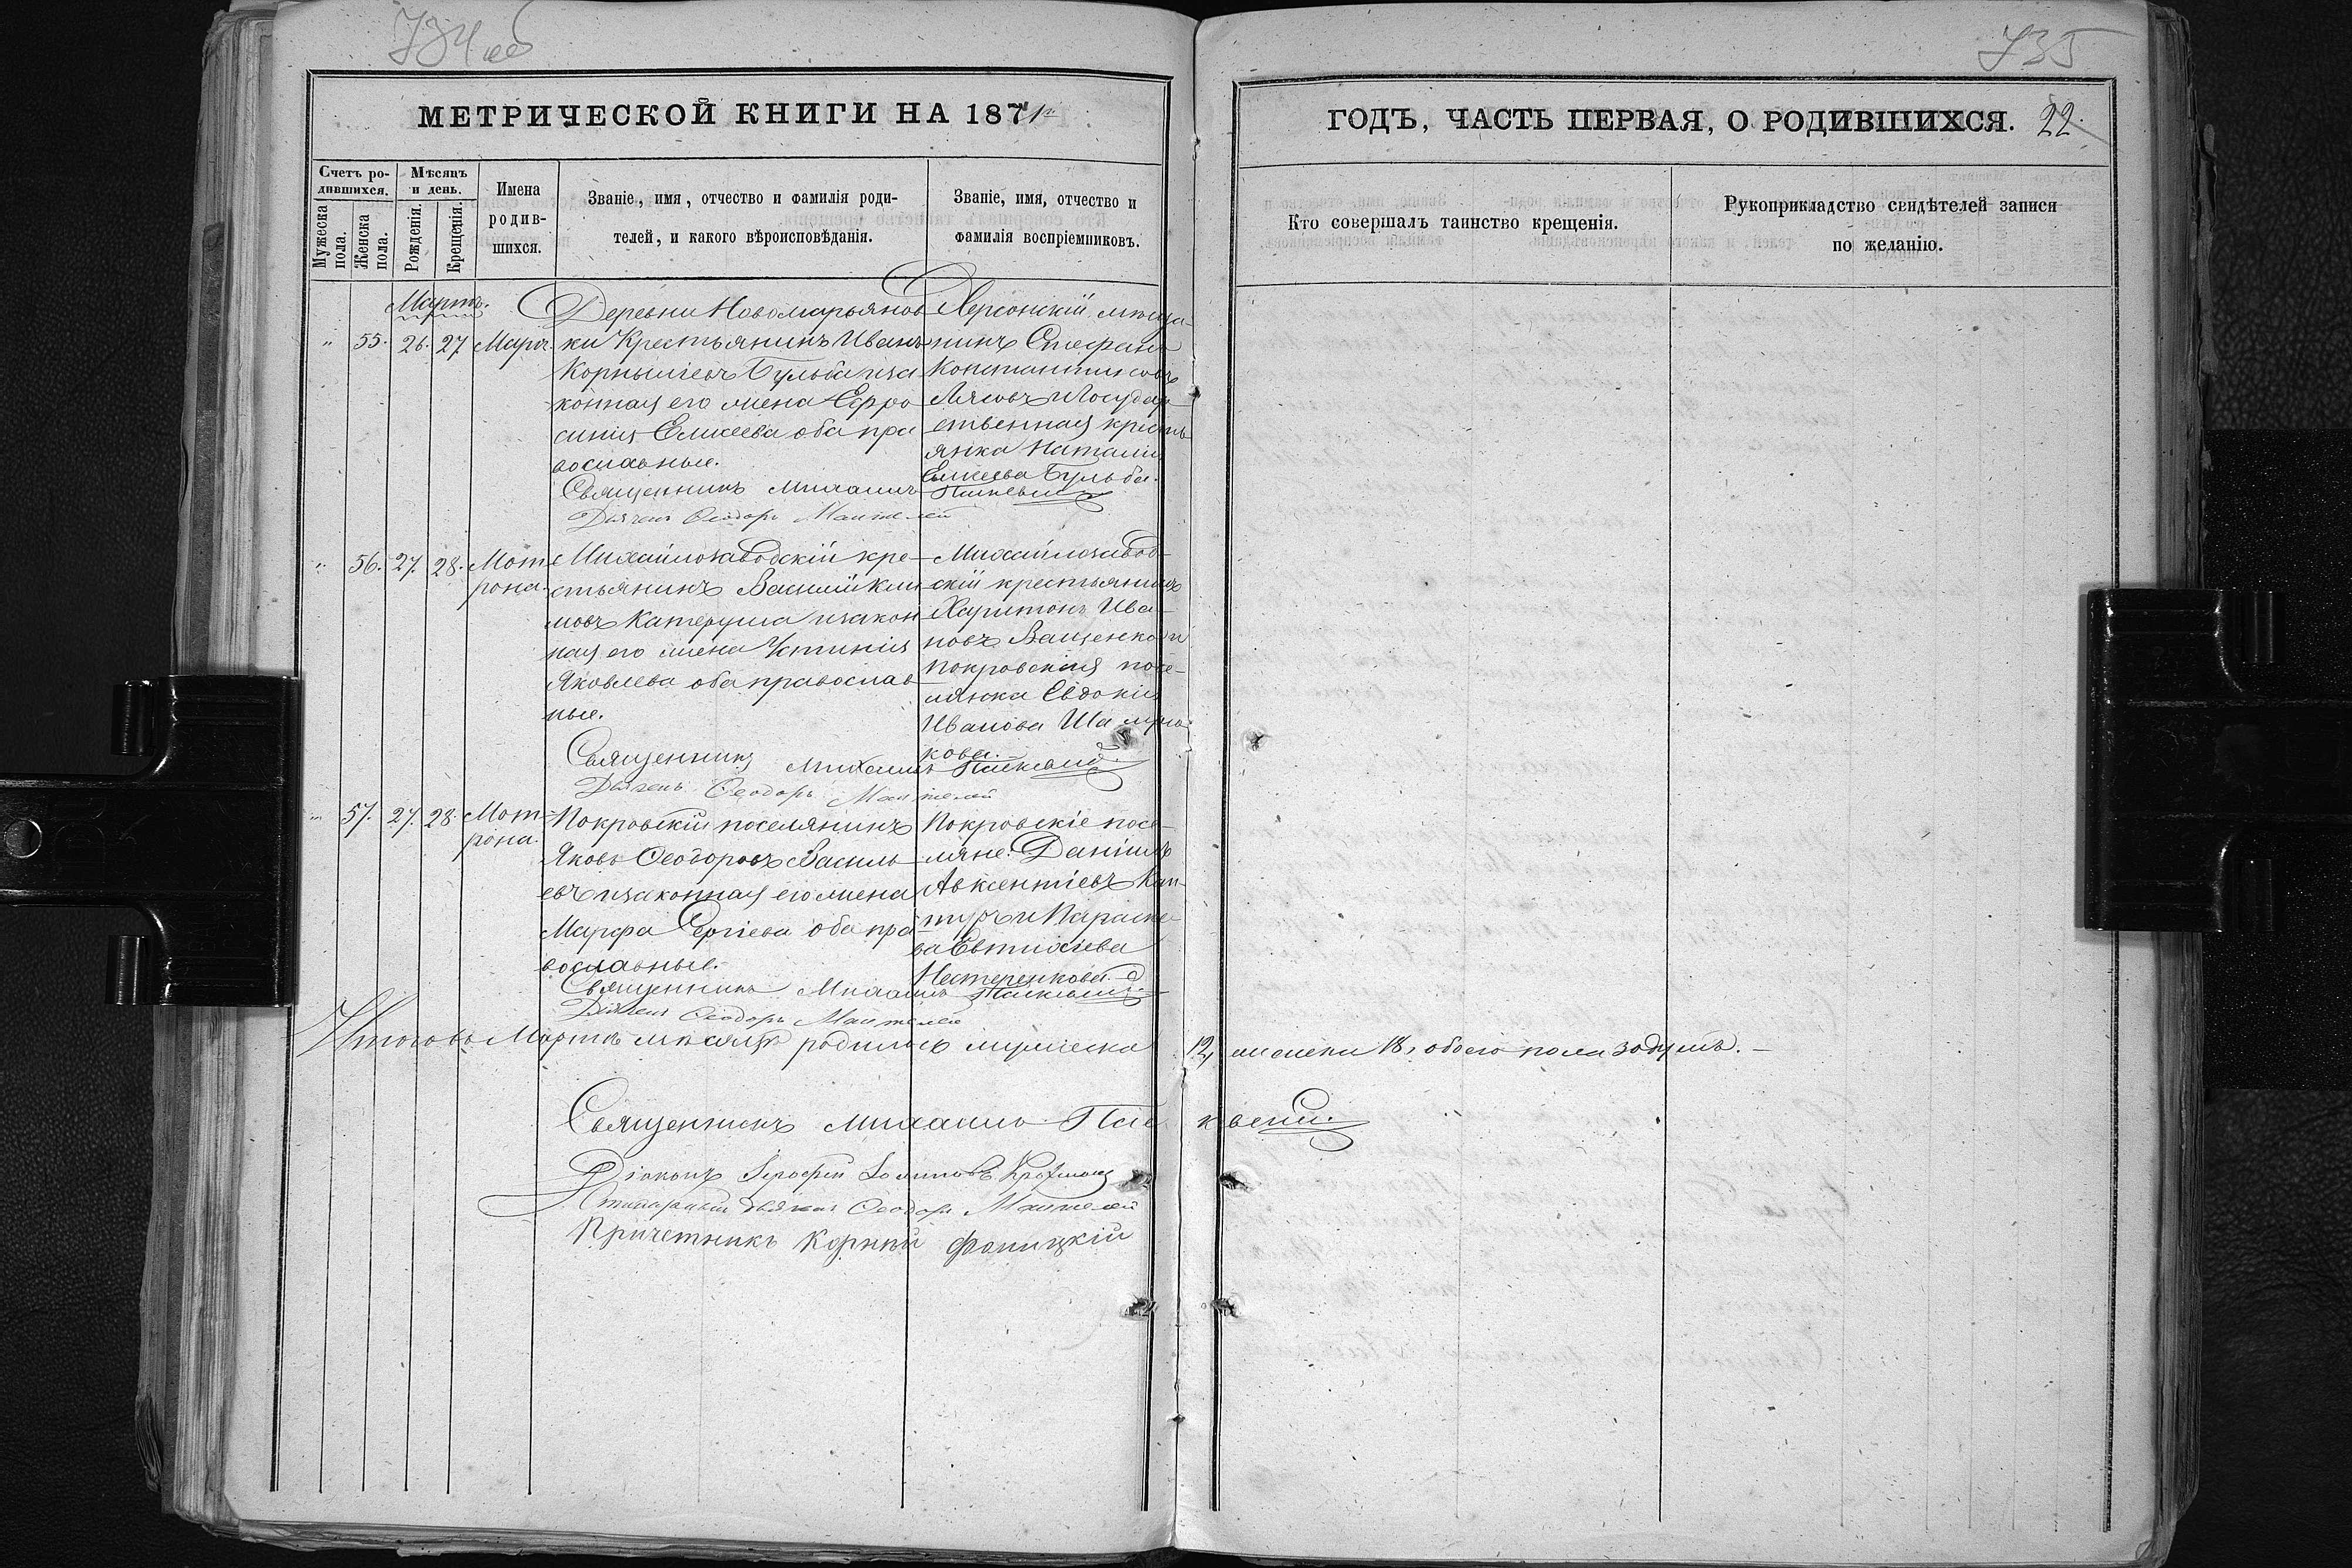 734 об
735
МЕТРИЧЕСКОЙ КНИГИ НА 1871
ГОДЪ, ЧАСТЬ ПЕРВАЯ, О РОДИВШИХСЯ. 22.
Счетъ ро-
дившихся.
Мужеска
пола.
Женска
пола.
Мѣсяцъ
и день.
Рожденія.
Крещенія.
Имена
родив-
шихся.
Званіе, имя, отчество и фамилія роди-
телей, и какого вѣроисповѣданія.
Званіе, имя, отчество и
фамилія воспріемниковъ.
Кто совершалъ таинство крещенія.
Рукоприкладство свидѣтелей записи
по желанію.
Мартъ.
" 55. 26. 27
Деревни Новомарьянов
ки Крестьянинъ Иванъ
Корныліевъ Бульба иза
конная его жена Евро
синія Елисеева оба пра
вославные.
Херсонскій мѣща
нинъ Стефанъ
Константиновъ
и Государ
ственная кресть
янка Наталія
Елисеева Бульба.
Священникъ Михаилъ
Дьячекъ Ѳеодоръ
" 56. 27. 28. Мот
рона.
Михайлозаводскій кре-
стьянинъ Василій Кли
мовъ Катеруша изакон
ная его жена Устинія
Яковлева оба православ
ные.
Михайлозавод-
скій крестьянинъ
Харитонъ Ива-
новъ Ващенко и
Покровская посе-
лянка Евдокія
Иванова
кова.
Священникъ Михаилъ
Дьячекъ Ѳеодоръ
" 57. 27. 28. Мот-
рона.
Покровскій поселянинъ
Яковъ Ѳеодоровъ Василь
евъ изаконная его жена
Марфа Сергіева оба пра
вославные.
Покровскіе посе-
ляне: Даніилъ
Авксентіевъ Кап-
туръ и Параске-
ва Евтихіева
Нестеренкова.
Священникъ Михаилъ
Дьячекъ Ѳеодоръ
Итого въ Мартѣ мѣсяцѣ родилось мужеска 12, женска 18, обоего пола 30 душъ.
Священникъ Михаилъ
Діаконъ
дьячекъ Ѳеодоръ
Причетникъ Корній